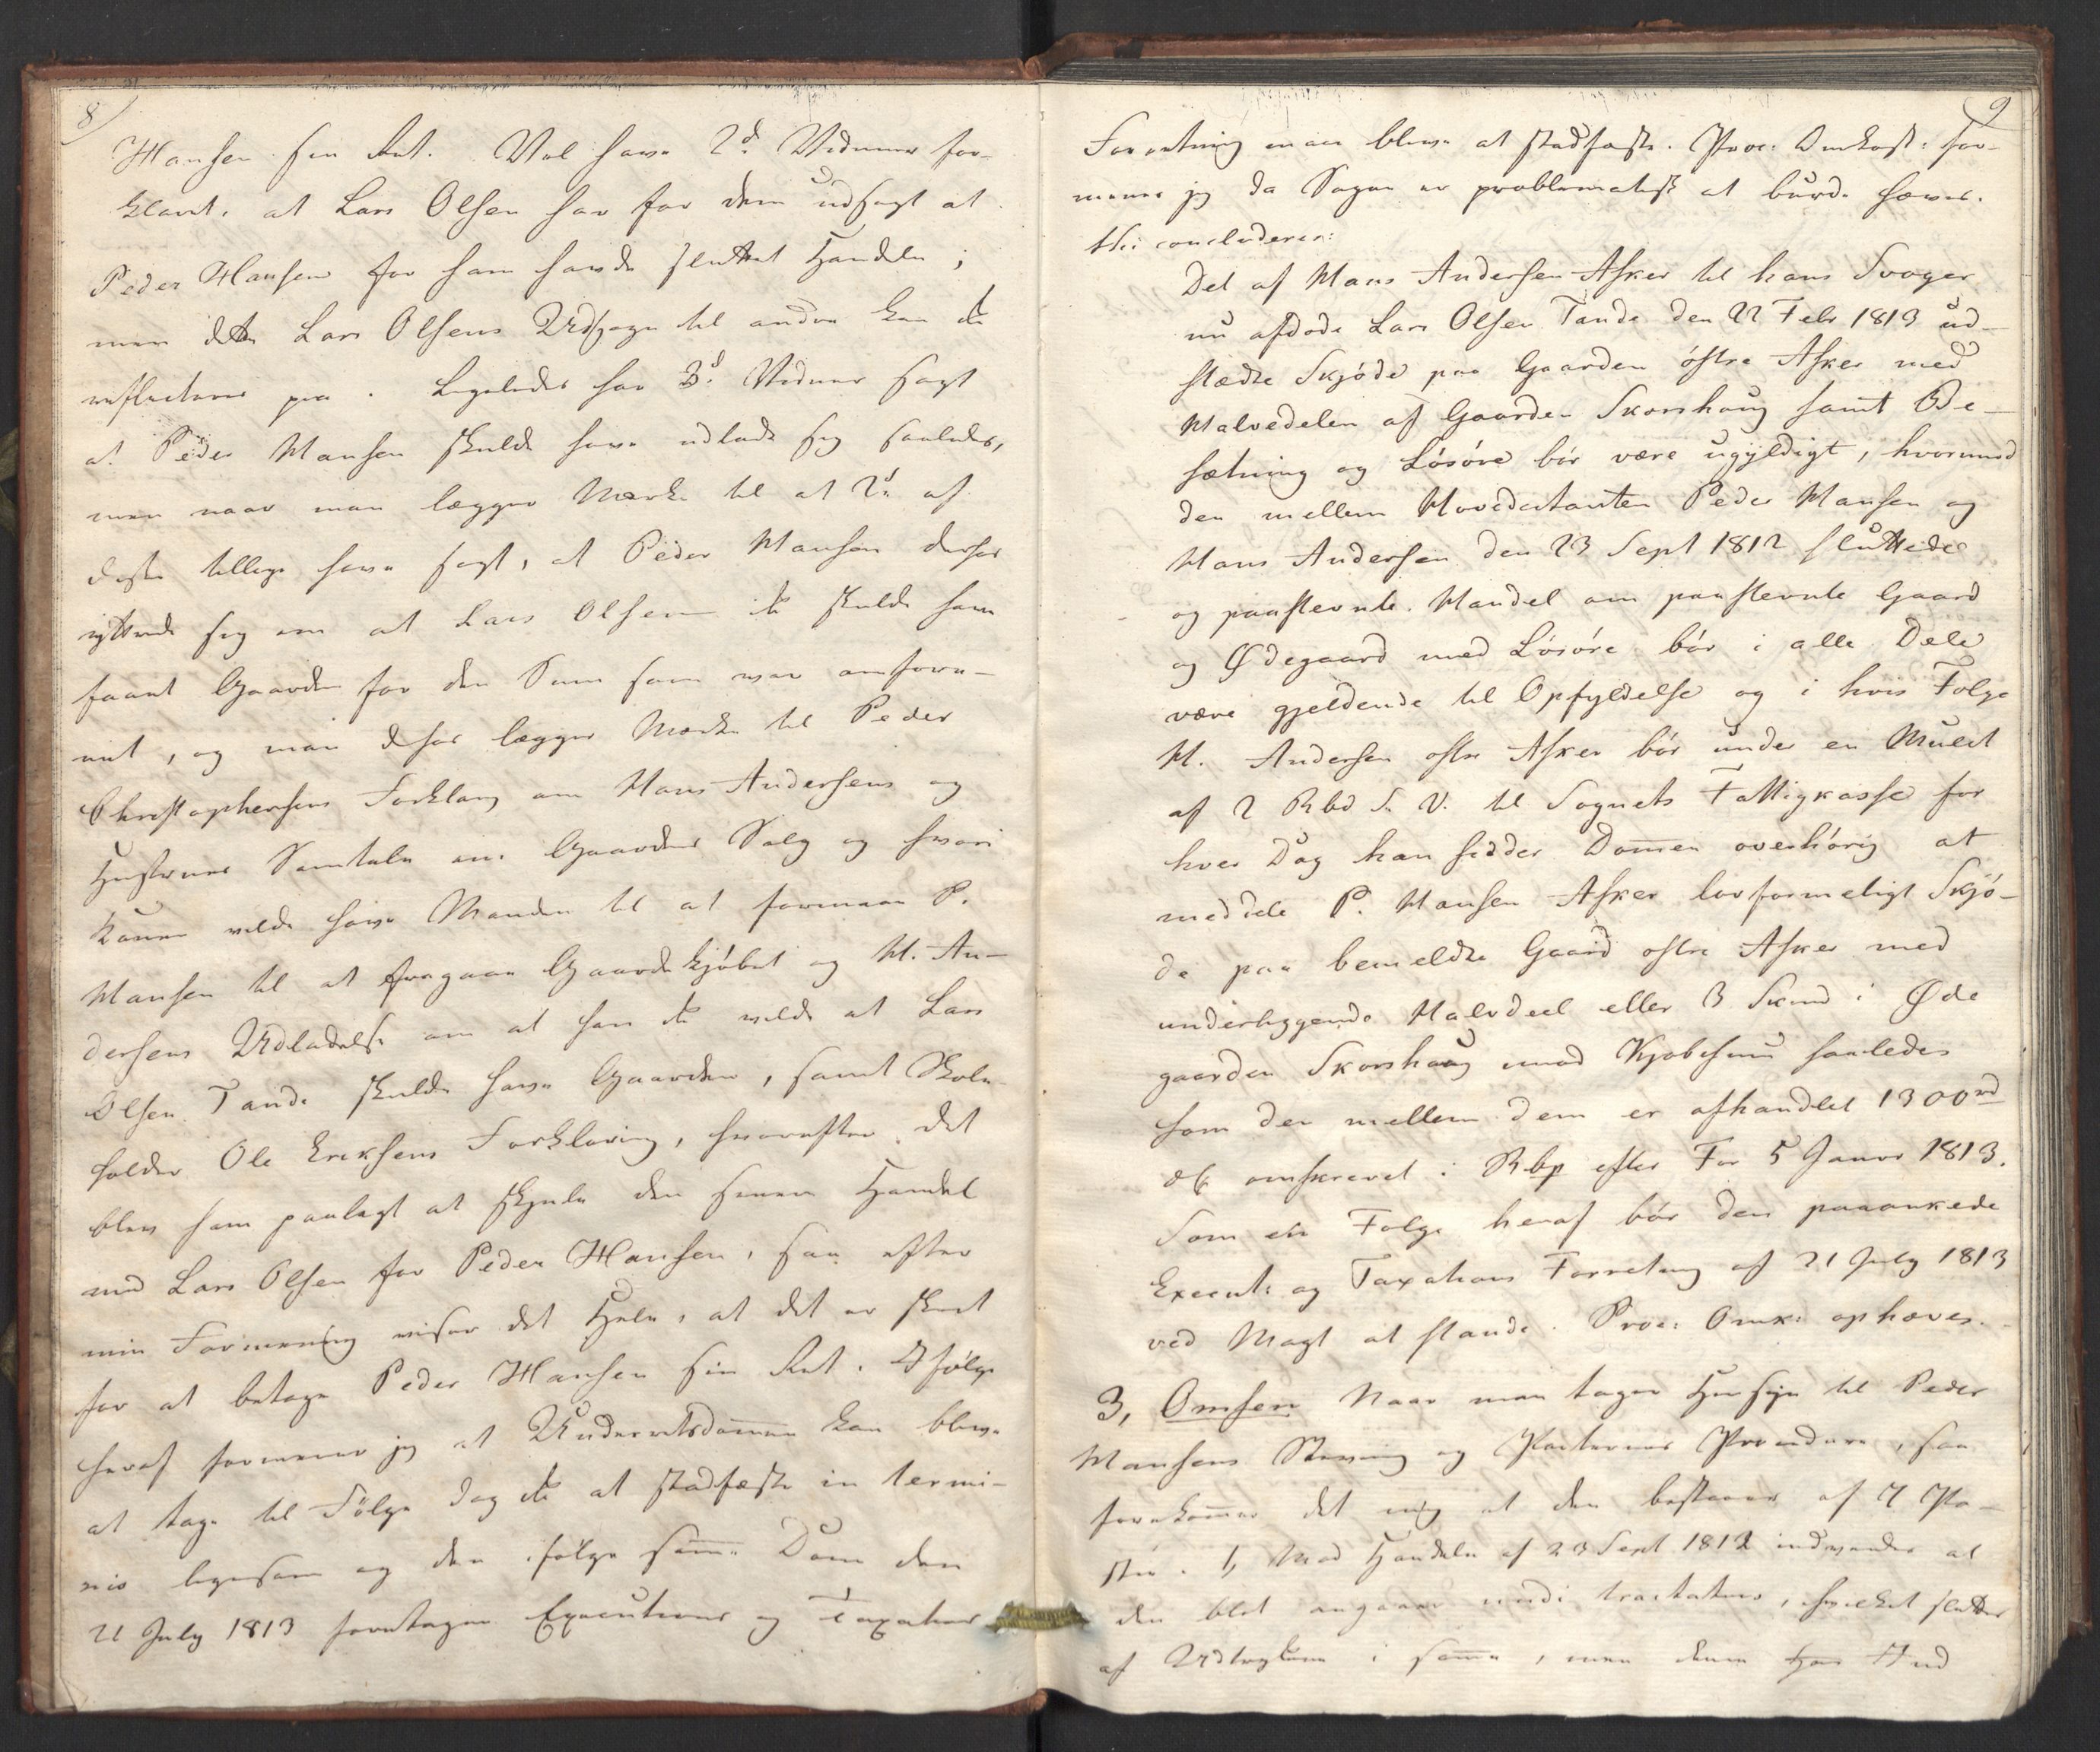 8
Hansen sin Ret. Vel have 2de Vidner for-
klaret, at Lars Olsen har for dem udsagt at
Peder Hansen før ham havde sluttet Handelen;
men dette Lars Olsens Udsagn til andre kan ei
reflecteres paa. Ligeledes har 3de Vidner sagt
at Peder Hansen skulde have udladt sig saaledes,
men naar man lægger Mærke til at 2de af
disse tillige have sagt, at Peder Hansen derhos
yttrede sig om at Lars Olsen ei skulde have
faaet Gaarden for den Sum som var omforen-
net, og man derhos lægger Mærke til Peder
Christophersens Forklaring om Hans Andersens og
Hustrues Samtale om Gaardens Salg og hvori
Konen vilde have Manden til at formaae P.
Hansen til at fragaae Gaardkjøbet og H. An-
dersens Udladelse om at han ei vilde at Lars
Olsen Tande skulde have Gaarden, samt Skole-
holder Ole Eriksens Forklaring, hvorefter det
blev ham paalagt at skjule den senere Handel
med Lars Olsen for Peder Hansen, saa efter
min Formening viser det Hele, at det er skeet
for at betage Peder Hansen sin Ret. Ifølge
heraf formener jeg at Underretsdommen kan blive
at tage til Følge dog ei at stadfæste in termi-
nis ligesom og den ifølge samme Dom den
21 July 1813 foretagne Executions og Taxations
9
Forretning maae blive at stadfæste. Proc: Omkost: for-
mener jeg da Sagen er problematisk at burde hæves.
thi concluderes:
Det af Hans Andersen Asker til hans Svoger
nu afdøde Lars Olsen Tande den 22 Febr 1813 ud-
stædte Skjøde paa Gaarden østre Asker med
Halvedelen af Gaarden Skorshaug samt Be-
sætning og Løsøre bør være ugyldigt, hvorimod
den mellem Hovedcitanten Peder Hansen og
Hans Andersen den 23 Sept 1812 sluttede
og paastevnte Handel om paastevnte Gaard
og Ødegaard med Løsøre bør i alle Dele
være gjeldende til Opfyldelse og i hvis Folge
H. Andersen ostre Asker bør under en Mulct
af 2 Rbd S. V. til Sognets Fattigkasse for
hver Dag han sidder Dommen overhørig at
meddele P. Hansen Asker lovformeligt Skjø-
de paa bemeldte Gaard ostre Asker med
underliggende Halvdeel eller 3 Skind i Øde
gaarden Skorshaug imod Kjøbesum saaledes
som der mellem dem er afhandlet 1300 rd
DC omskrevet i Rbp efter For 5 Januar 1813.
Som en Følge heraf bør den paaankede
Execut: og Taxations Forretning af 21 July 1813
ved Magt at stande. Proc: Omk: ophæves.
3, Omsen Naar man tager Hensyn til Peder
Hansens Stevning og Parternes Procedure, saa
forekommer det mig at den bestaaer af 7 Po-
ster. 1, Mod Handelen af 23 Sept 1812 indvendes at
den blot angaaer tractater, hvilket slutter
af Udtrykkene i samme, men denne Ind